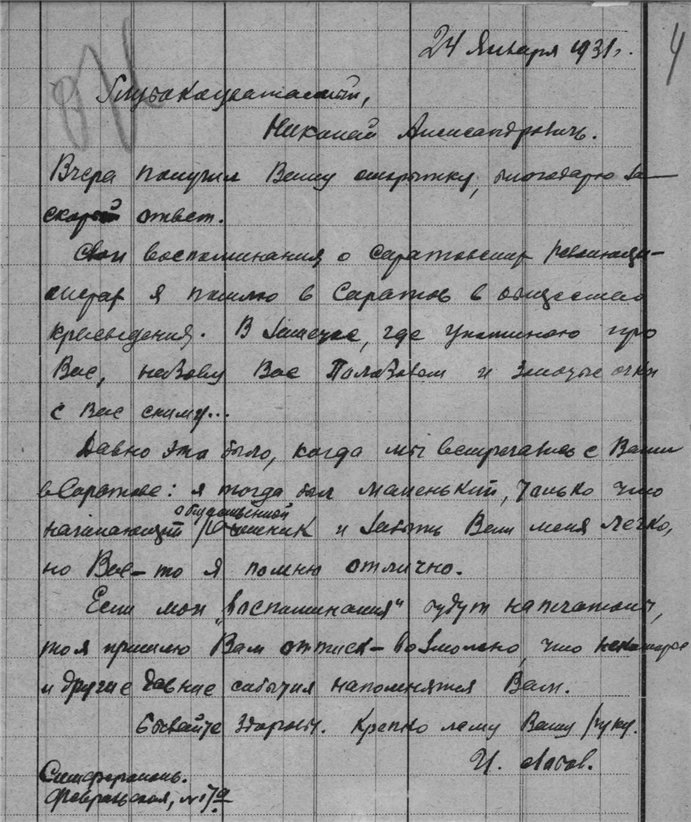 4
24 Января 1931 г.
Глубокоуважаемый,
Николай Александрович.
Вчера получил Вашу открытку, благодарю за
скорый ответ.
Свои воспоминания о саратовских революци-
онерах я пошлю в Саратов в общество
краеведения. В заметке, где упоминаю про
Вас, назову Вас Полазовым и золотые очки
с Вас сниму...
Давно это было, когда мы встречались с Вами
в Саратове: я тогда был маленький, только что
начинающий общественной работник и забыть Вам меня легко,
но Вас-то я помню отлично.
Если мои "воспоминания" будут напечатаны,
то я пришлю Вам оттиск - возможно, что некоторые
и другие давние события напомнятся Вам.
Бывайте здоровы. Крепко жму Вашу руку.
И.
Симферополь.
Февральская, №